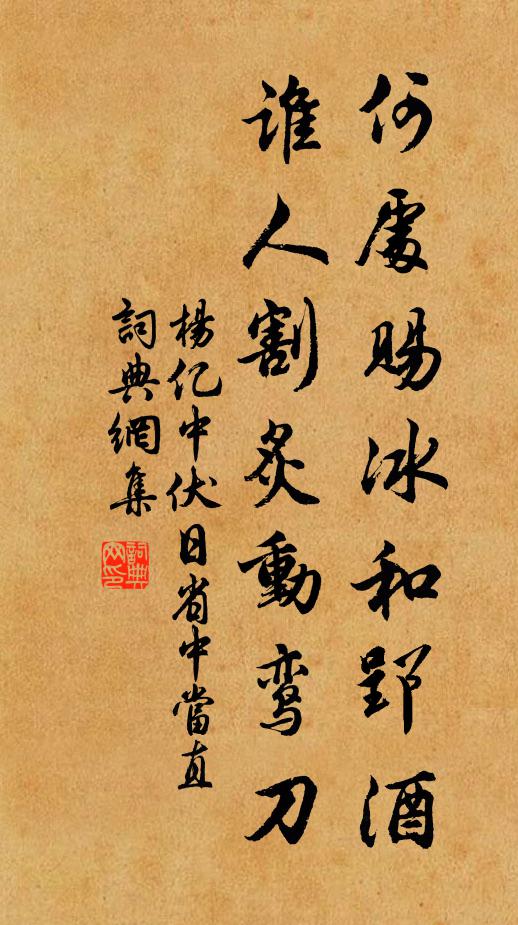 何處賜冰和郢酒
誰人割炙動鸾刀
楊亿中伏日省中當直
詞典網集
詞典网印